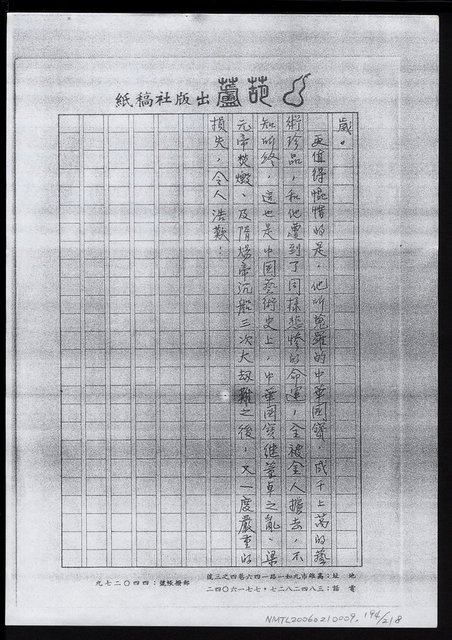 葫蘆出版社稿紙
歲。
更值得慨惜的是，他所蒐羅的中華國寶，成千上萬的藝
術珍品，和他遭到了同樣悲慘的命運，全被金人擄去，不
知所終，這也是中國藝術史上，中華國寶繼董卓之亂、梁
元帝焚燬、及隋煬帝沉船三次大劫難之後，又一度嚴重的
損失，令人浩歎！
地址：高雄市九如一路一四六巷四之三號
電話：三八四二八二七．七七一六〇四二
郵撥帳號：四四〇二七九
NMTL20060210009. 194/218